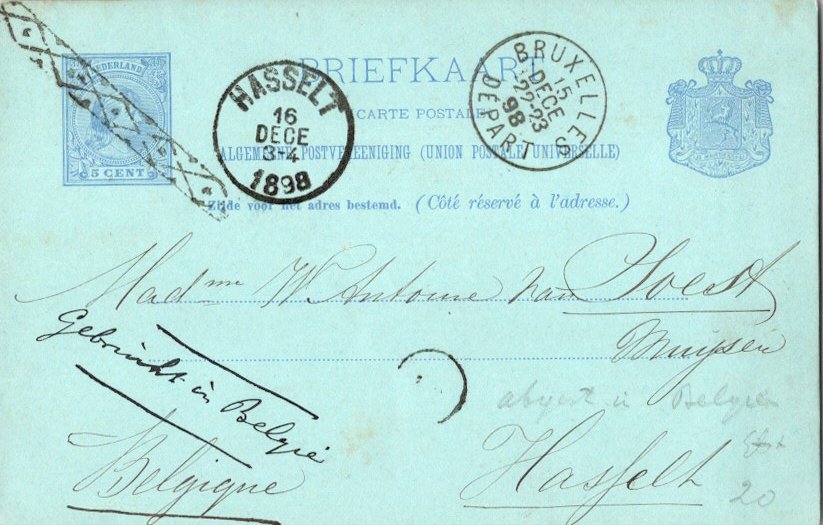 NEDERLAND
5 CENT
BRIEFKAART
CARTE POSTALE
ALGEMEENE POSTVEREENIGING (UNION POSTALE UNIVERSELLE)
Zijde voor het adres bestemd. (Côté réservé à l'adresse.)
HASSELT
16
DECE
3-4
1898
BRUXELLES 6
15
DECE
22-23
98
DÉPART
Madme W Antoine van Soest
Gebruikt in België
Belgique
Hasselt
in Belgie
20